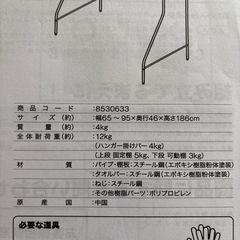 商品コード：8530633
サイズ（約）：幅65～95×奥行46×高さ186cm
質量（約）：4kg
全体耐荷重（約）：12kg
（ハンガー掛けバー 4kg）
（上段 固定棚 5kg、下段 可動棚 3kg）
材質：パイプ・棚板：スチール鋼（エポキシ樹脂粉体塗装）
タオルバー：スチール鋼（エポキシ樹脂粉体塗装）
ねじ：スチール鋼
その他樹脂パーツ：ポリプロピレン
原産国：中国
必要な道具